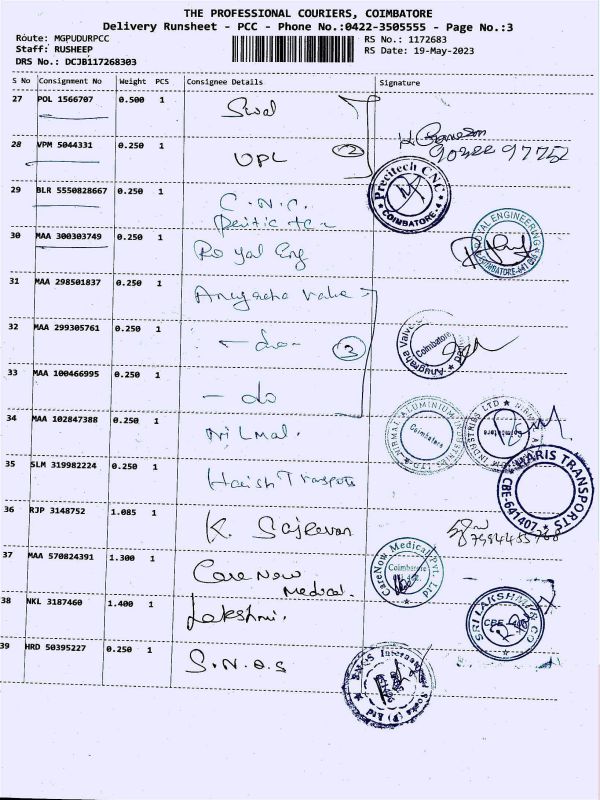 THE PROFESSIONAL COURIERS, COIMBATORE
Delivery Runsheet - PCC - Phone No.:0422-3505555 - Page No.:3
Route: MGPUDURPCC RS No.: 1172683
Staff: RUSHEEP RS Date: 19-May-2023
DRS No.: DCJB117268303
S No Consignment No Weight PCS Consignee Details Signature
27 POL 1566707 0.500 1
28 VPM 5044331 0.250 1 UPL 2
90322 97752
29 BLR 5550828667 0.250 1 C.N.C.
Precitech CNC COIMBATORE-4
30 MAA 300303749 0.250 1 Royal Eng
31 MAA 298501837 0.250 1 Anugraha Valve
32 MAA 299305761 0.250 1 - do - 3
Anugraha Valve Coimbatore
33 MAA 100466995 0.250 1 - do
34 MAA 102847388 0.250 1 Nilmal.
NIRMAL ALUMINIUM INDUSTRIES LTD Coimbatore
35 SLM 319982224 0.250 1 Harish Transpots
HARIS TRANSPORTS CBE-641407
36 RJP 3148752 1.085 1 K. Sajeevan
37 MAA 570824391 1.300 1 CareNow
Medical.
CareNow Medical Pvt. Ltd Coimbatore
38 NKL 3187460 1.400 1 Lakshmi.
SRI LAKSHMI & CO CBE
39 HRD 50395227 0.250 1 S.N.Q.S
SNQS International Socks (P) Ltd